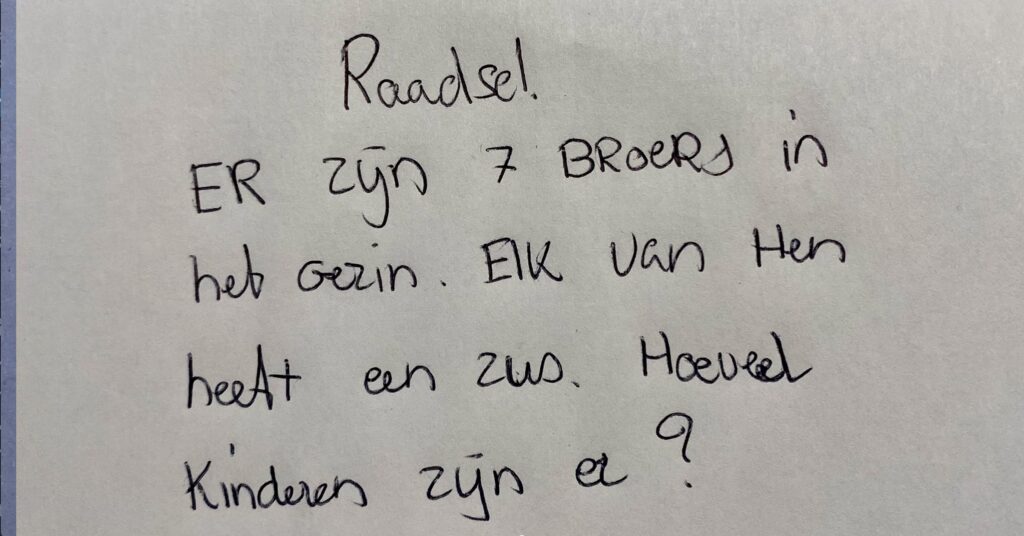 Raadsel.
ER zijn 7 BROERS in
het Gezin. Elk van Hen
heeft een zus. Hoeveel
Kinderen zijn er ?